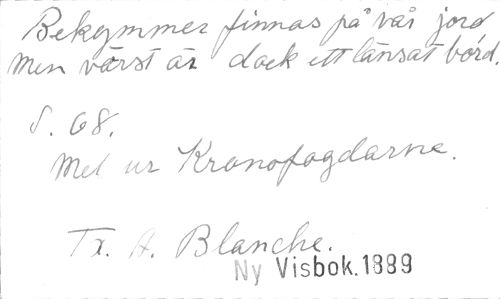 Bekymmer finnas på vår jord
men värst är dock ett länsat bord.
S. 68.
Mel ur Kronofogdarne.
Tx. A. Blanche.
Ny Visbok. 1889